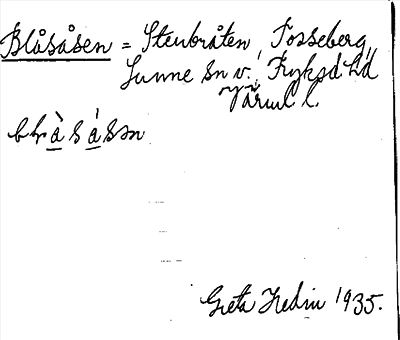 Blåsåsen = Stenbråten, Fosseberg,
Sunne sn v., Fryksd hd
Värml l.
blåsåsən
Greta Hedin 1935.